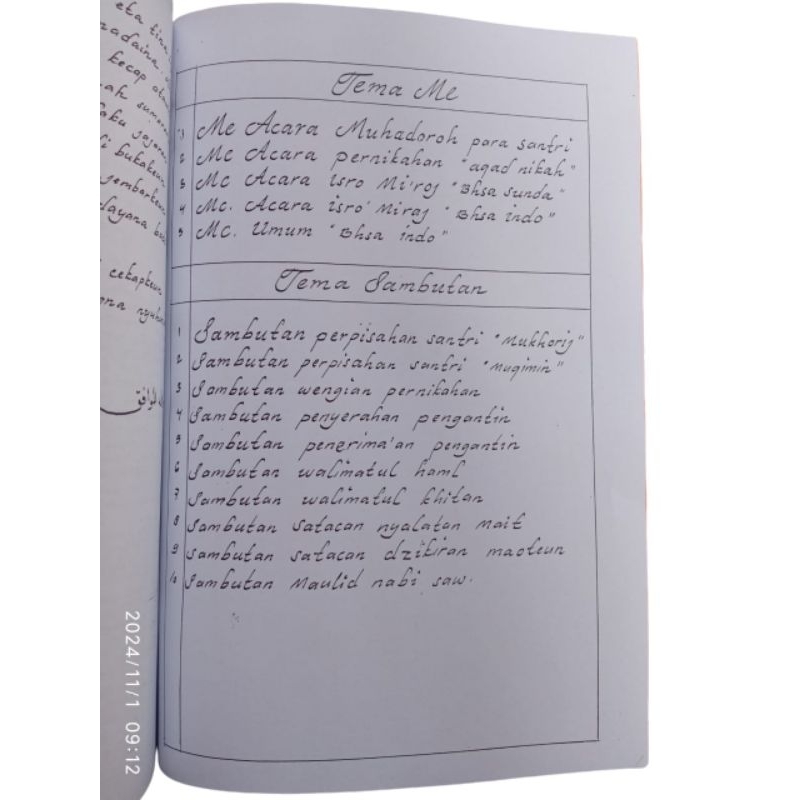 eta
kecap
bukakeun
jemberkeun
dayana
cekapkeun
Tema Mc
1 Mc Acara Muhadoroh para santri
2 Mc Acara pernikahan "aqad nikah"
3 Mc Acara isro Mi'roj "Bhsa sunda"
4 Mc. Acara isro' Miraj "Bhsa indo"
5 Mc. Umum "Bhsa indo"
Tema Sambutan
1 Sambutan perpisahan santri "Mukhorij"
2 Sambutan perpisahan santri "Muqimin"
3 Sambutan wengian pernikahan
4 Sambutan penyerahan pengantin
5 Sambutan penerima'an pengantin
6 Sambutan walimatul haml
7 Sambutan walimatul khitan
8 Sambutan satacan nyalatan mait
9 Sambutan satacan dzikiran maoteun
10 Sambutan Maulid nabi saw.
2024/11/1 09:12